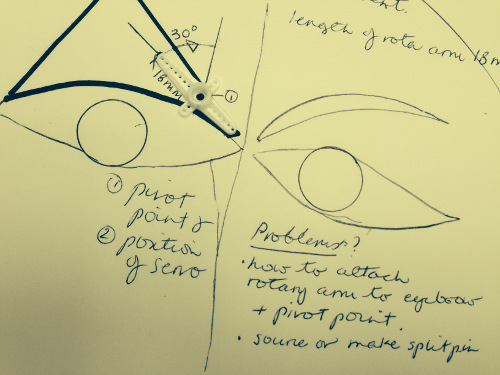 ent.
length of rota arm 18m
30°
18mm
①
① pivot
point &
② position
of servo
Problems?
• how to attach
rotary arm to eyebrow
+ pivot point.
• source or make splitpin